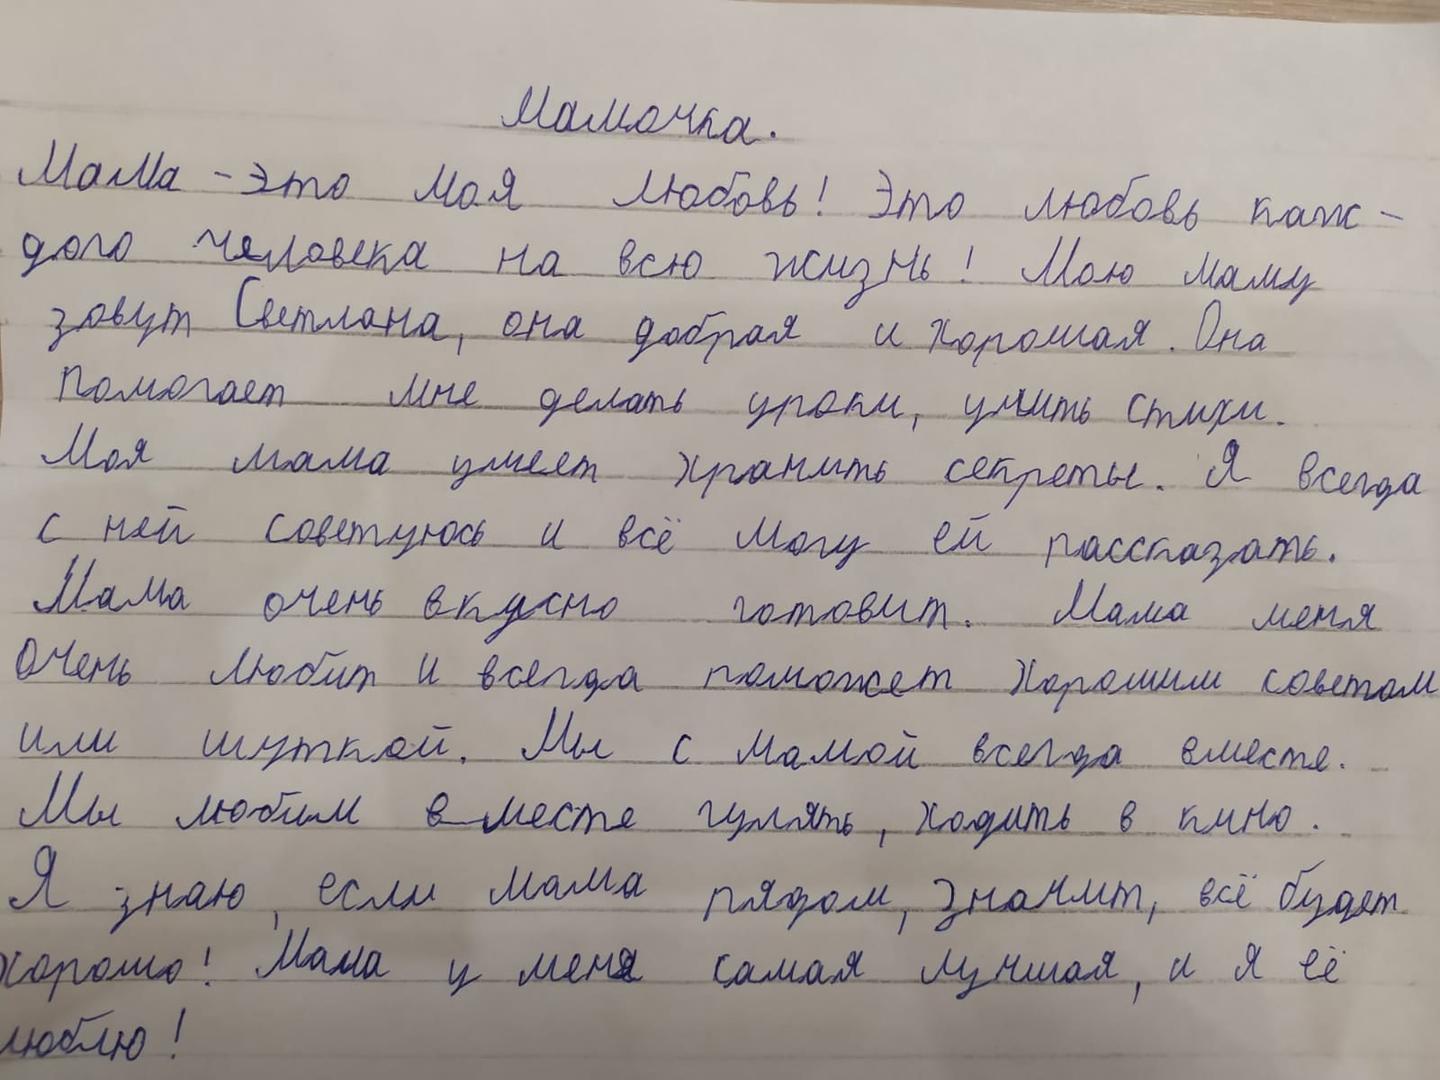 Мамочка.
Мама - это моя любовь! Это любовь каж-
дого человека на всю жизнь! Мою маму
зовут Светлана, она добрая и хорошая. Она
помогает мне делать уроки, учить стихи.
Моя мама умеет хранить секреты. Я всегда
с ней советуюсь и всё могу ей рассказать.
Мама очень вкусно готовит. Мама меня
очень любит и всегда поможет хорошим советом
или шуткой. Мы с мамой всегда вместе.
Мы любим вместе гулять, ходить в кино.
Я знаю, если мама рядом, значит, всё будет
хорошо! Мама у меня самая лучшая, и я её
люблю!